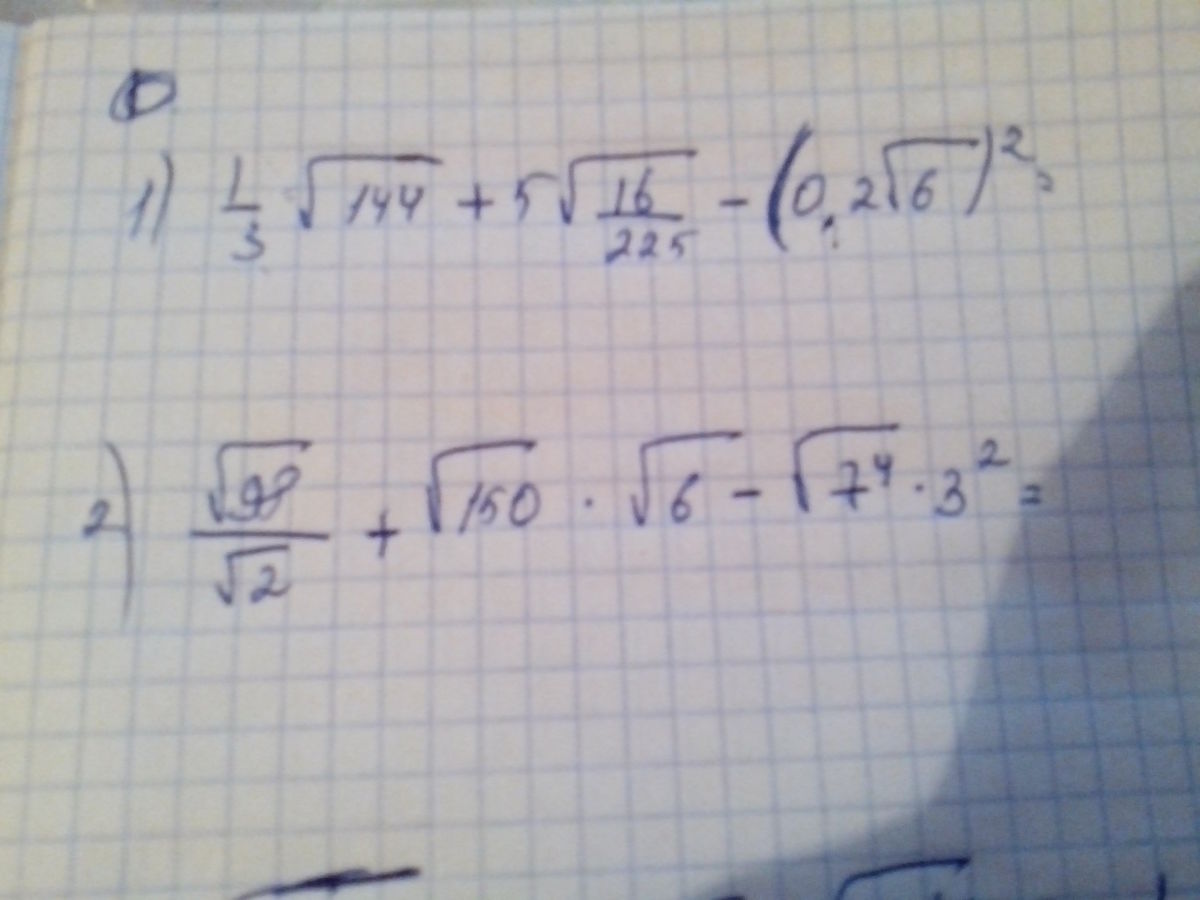 1) 1/3 √144 + 5√(16/225) - (0,2√6)²;
2) √98/√2 + √150 · √6 - √7⁴ · 3² =